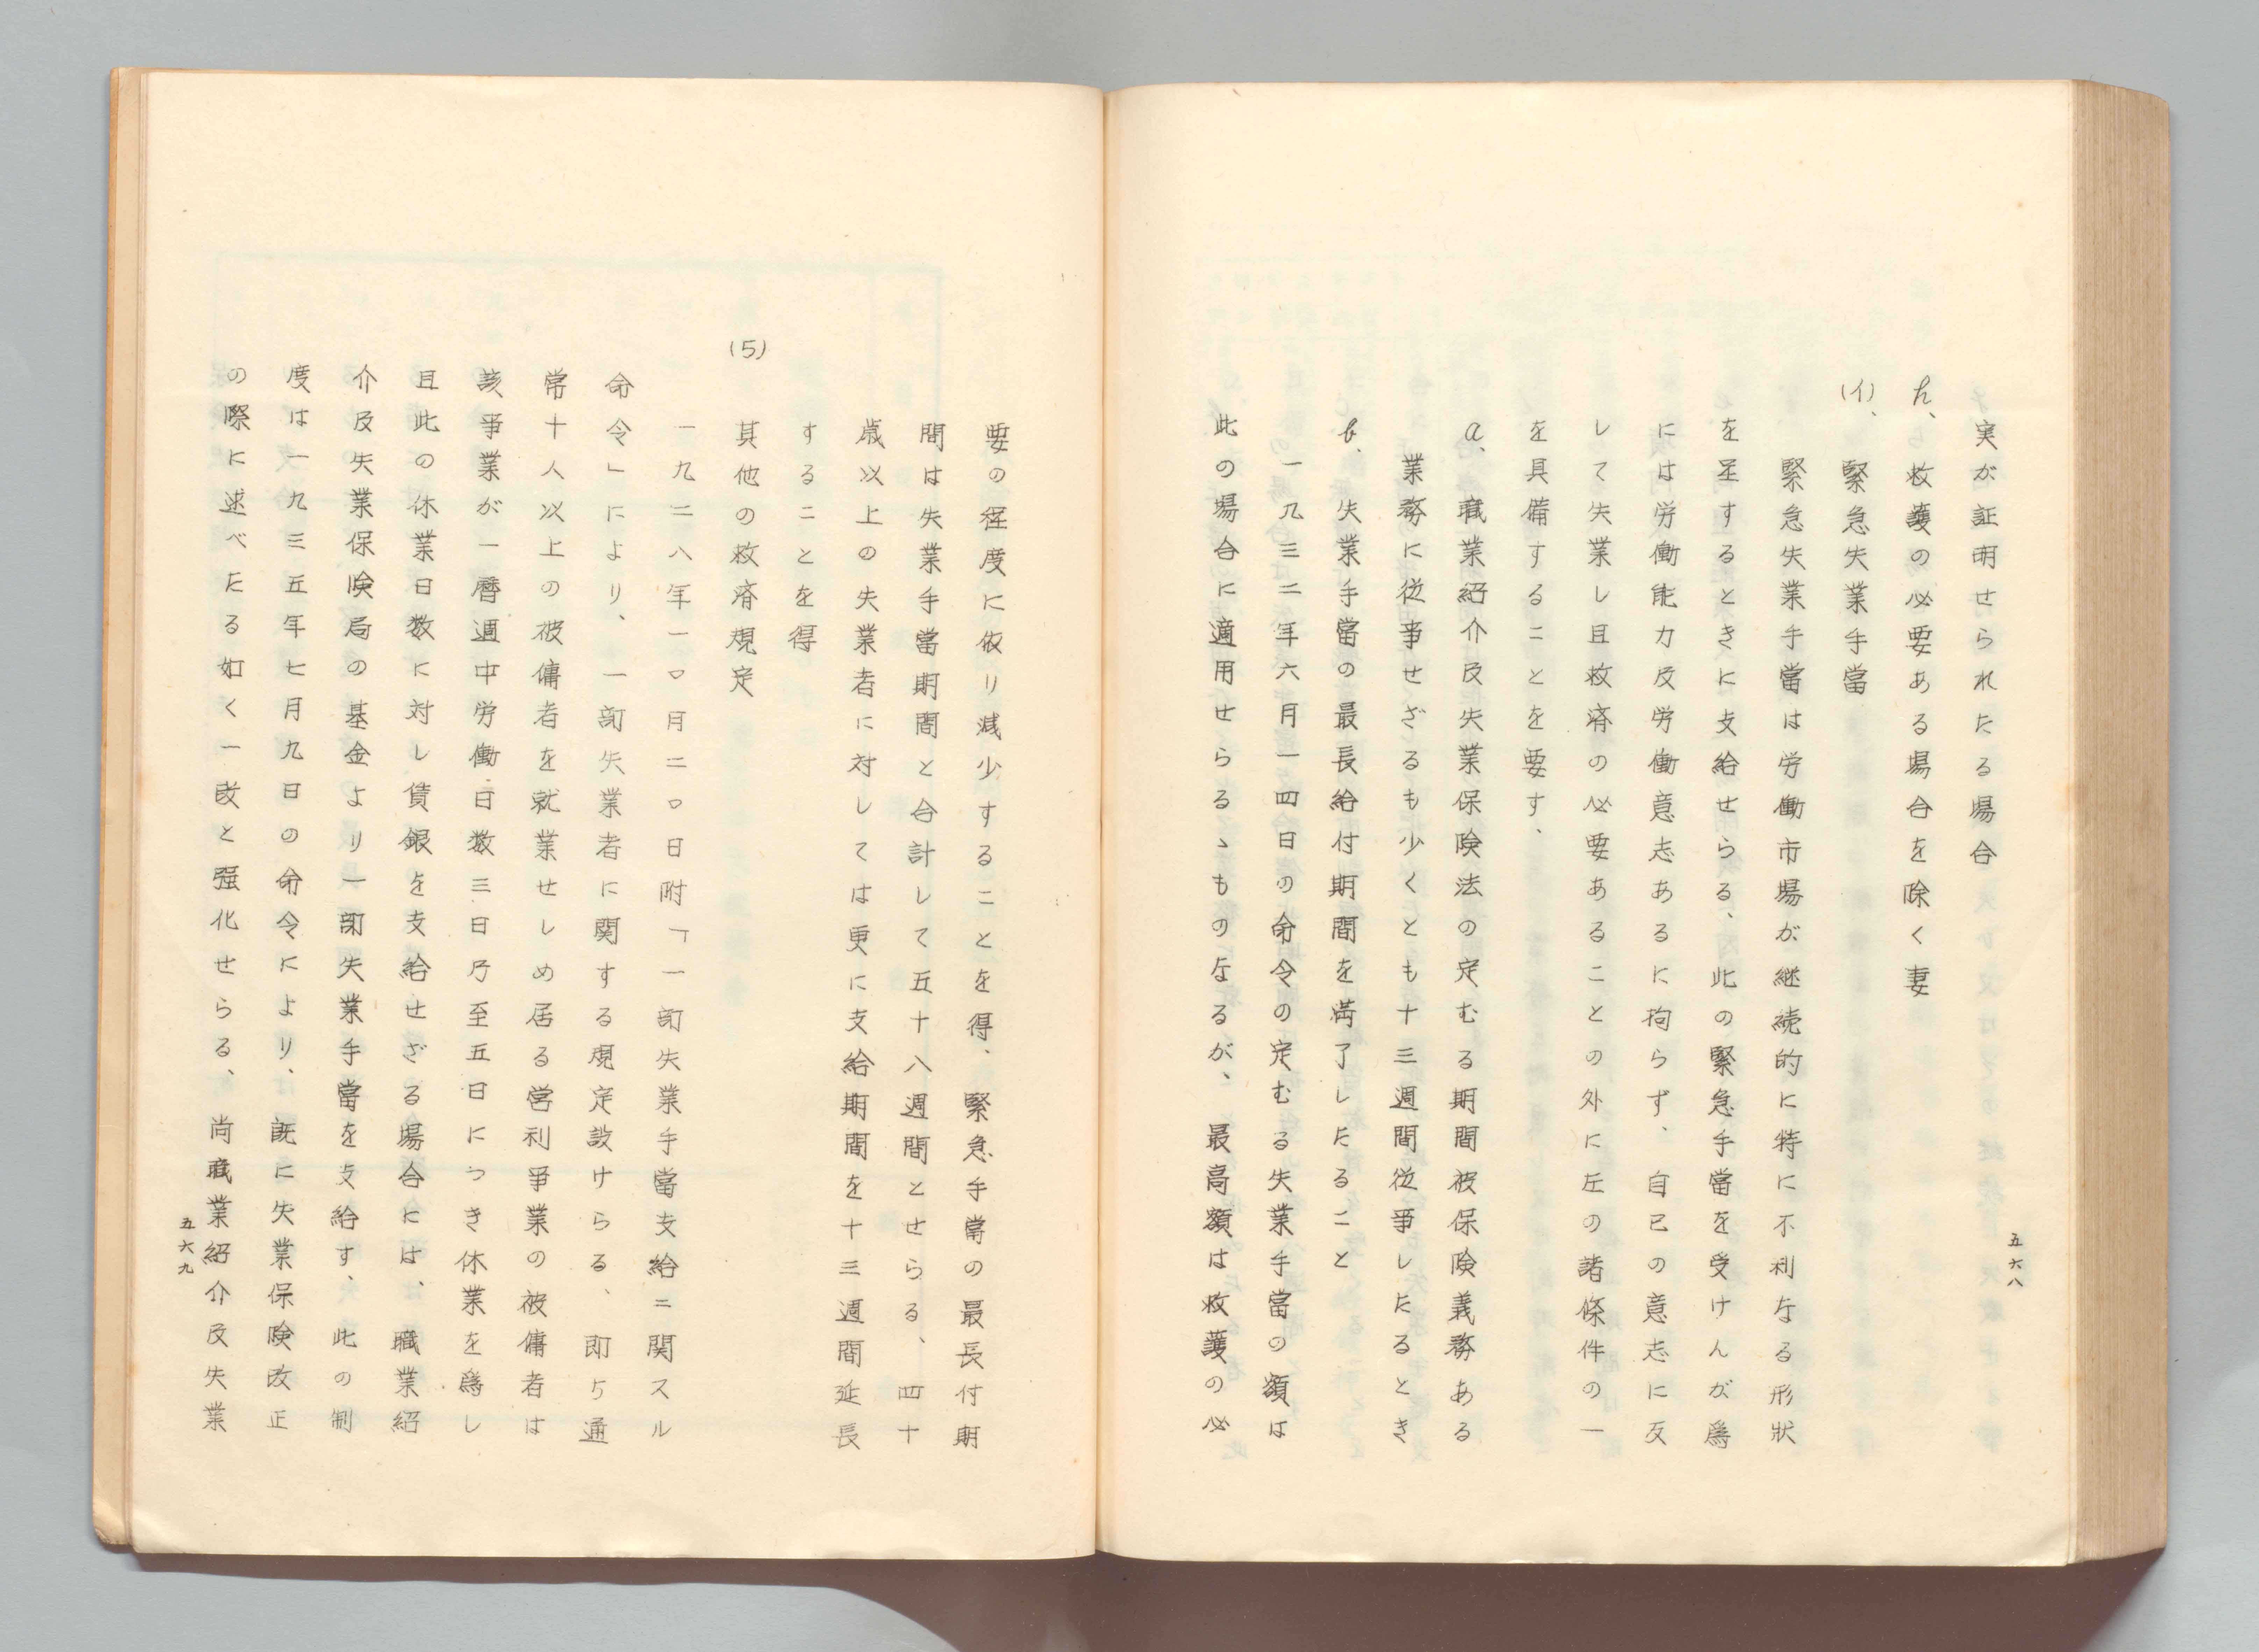 実が証明せられたる場合
h、救護の必要ある場合を除く妻
(イ)、緊急失業手當
緊急失業手當は労働市場が継続的に特に不利なる形状
を呈するときに支給せらる、此の緊急手當を受けんが爲
には労働能力及労働意志あるに拘らず、自己の意志に反
して失業し且救済の必要あることの外に左の諸條件の一
を具備することを要す、
a、職業紹介及失業保険法の定むる期間被保険義務ある
業務に従事せざるも少くとも十三週間従事したるとき
b、失業手當の最長給付期間を満了したること
一九三二年六月一四日の命令の定むる失業手當の額は
此の場合に適用せらるゝものなるが、最高額は救護の必
五六八
要の程度に依り減少することを得、緊急手當の最長付期
間は失業手當期間と合計して五十八週間とせらる、四十
歳以上の失業者に対しては更に支給期間を十三週間延長
することを得
(5)其他の救済規定
一九二八年一〇月二〇日附「一部失業手當支給ニ関スル
命令」により、一部失業者に関する規定設けらる、即ち通
常十人以上の被傭者を就業せしめ居る営利事業の被傭者は
該事業が一暦週中労働日数三日乃至五日につき休業を爲し
且此の休業日数に対し賃銀を支給せざる場合には、職業紹
介及失業保険局の基金より一部失業手當を支給す、此の制
度は一九三五年七月九日の命令により、既に失業保険改正
の際に述べたる如く一改と强化せらる、尚職業紹介及失業
五六九